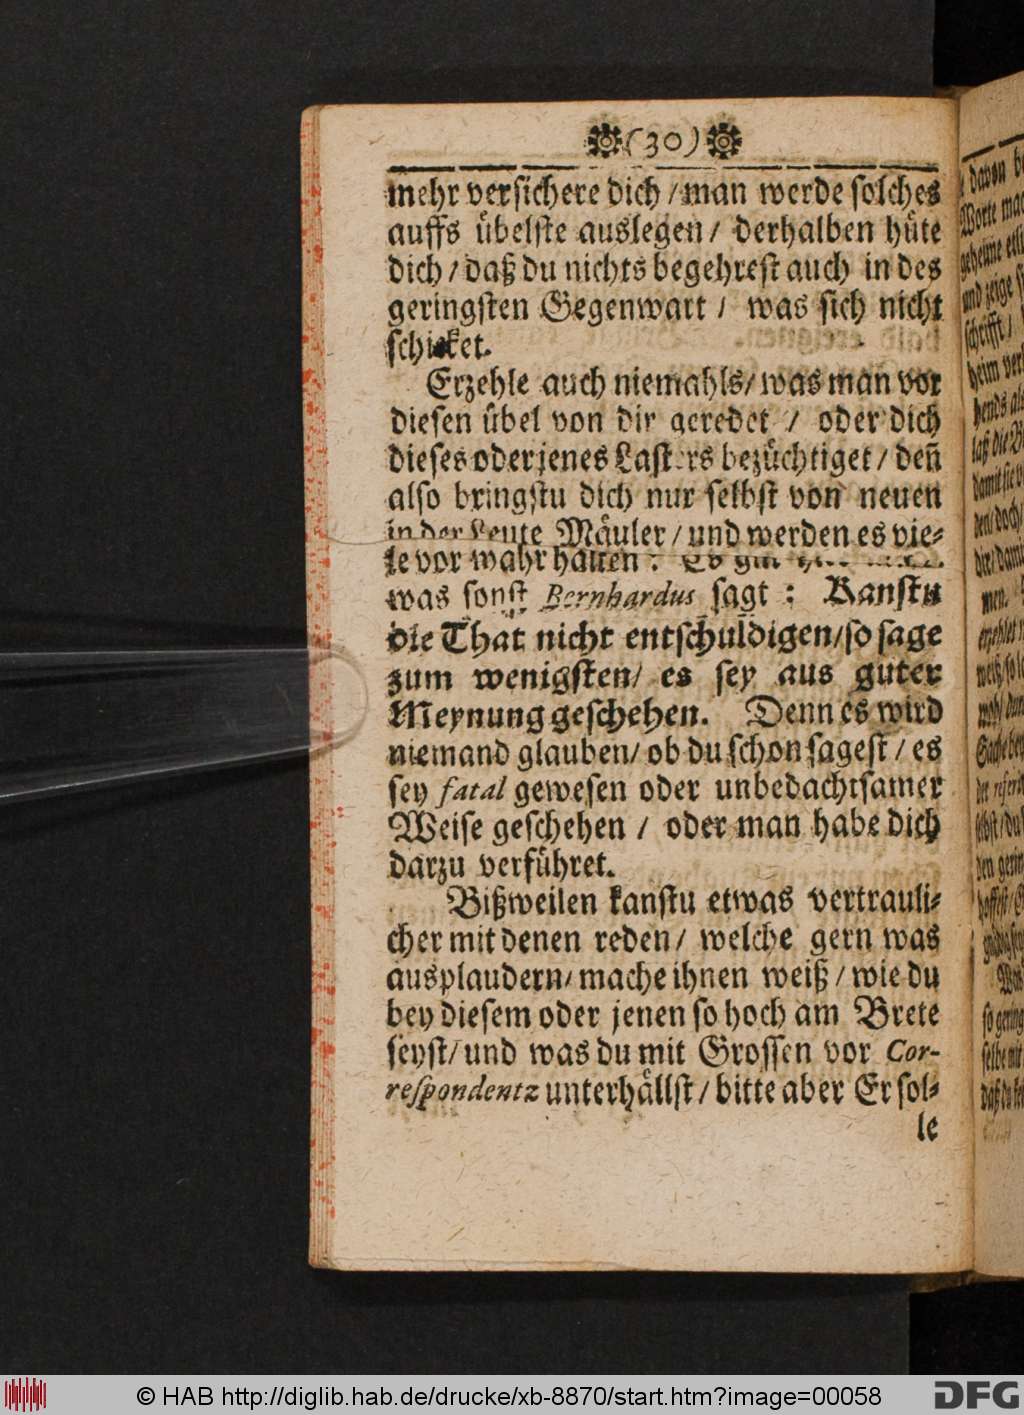 (30)
mehr versichere dich / man werde solches
auffs übelste auslegen / derhalben hüte
dich / daß du nichts begehrest auch in des
geringsten Gegenwart / was sich nicht
schicket.
Erzehle auch niemahls / was man vor
diesen übel von dir geredet / oder dich
dieses oder jenes Lasters bezüchtiget / den̄
also bringstu dich nur selbst von neuen
in der Leute Mäuler / und werden es vie-
le vor wahr halten: Es gilt hier
was sonst Bernhardus sagt: Kanstu
die That nicht entschuldigen / so sage
zum wenigsten / es sey aus guter
Meynung geschehen. Denn es wird
niemand glauben / ob du schon sagest / es
sey fatal gewesen oder unbedachtsamer
Weise geschehen / oder man habe dich
darzu verführet.
Bißweilen kanstu etwas vertrauli-
cher mit denen reden / welche gern was
ausplaudern / mache ihnen weiß / wie du
bey diesem oder jenen so hoch am Brete
seyst / und was du mit Grossen vor Cor-
respondentz unterhällst / bitte aber Er sol-
le
davon
Worte
geheime
und zeige
© HAB http://diglib.hab.de/drucke/xb-8870/start.htm?image=00058
DFG